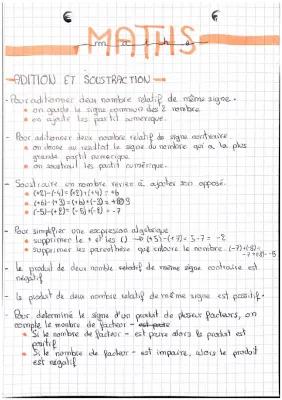 MATHS
maths
ADITION ET SOUSTRACTION
- Pour aditionner deux nombre relatif de même signe.
• on garde le signe commun des 2 nombre
• on ajoute les partit numerique.
- Pour aditionner deux nombre relatif de signe contraire.
• on donne au resultat le signe du nombre qui a la plus
grande partit numerique
• on soustrait les partit numérique.
- Soustraire un nombre revien à ajouter son opposé.
• (+2)-(-4)=(+2)+(+4)= +6
• (+6)-(+3)=(+6)+(-3)= +3
• (-5)-(+2)=(-5)+(-2)= -7
- Pour simplifier une expression algébrique
• supprimer le + et les () → (+5)-(+7)= 5-7= -2
• supprimer les parenthèse que entoure le nombre.
- le produit de deux nombre relatif de même signe contraire est
négatif
- le produit de deux nombre relatif de même signe est positif.
- Pour determiné le signe d'un produit de plusieur facteurs, on
compte le nombre de facteur -
• Si le nombre de facteur - est paire alors le produit est
positif
• Si le nombre de facteur - est impaire, alors le produit
est négatif